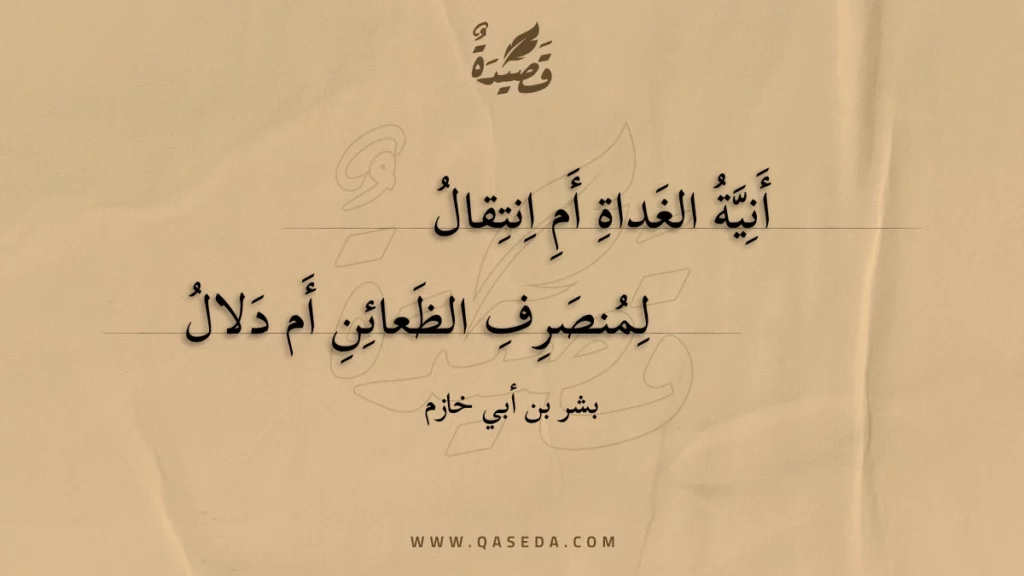 قَصِيدَةٌ
أَنِيَّةُ الغَداةِ أَمِ اِنتِقالُ
لِمُنصَرِفِ الظَعائِنِ أَم دَلالُ
بشر بن أبي خازم
WWW.QASEDA.COM